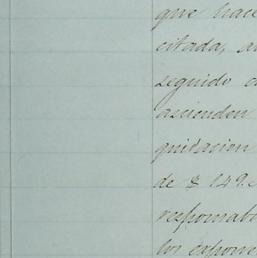 que hace
citada, a
seguido c
ascienden
quidacion
de $ 149.
responsab
los expone